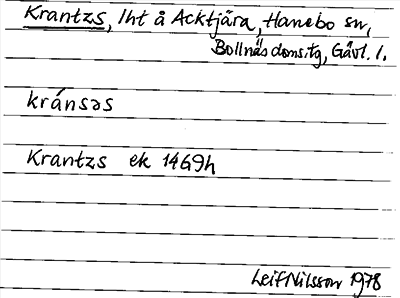 Krantzs, lht å Acktjära, Hanebo sn,
Bollnäs domsitg, Gävl. l.
kránsəs
Krantzs ek 14G9h
Leif Nilsson 1978